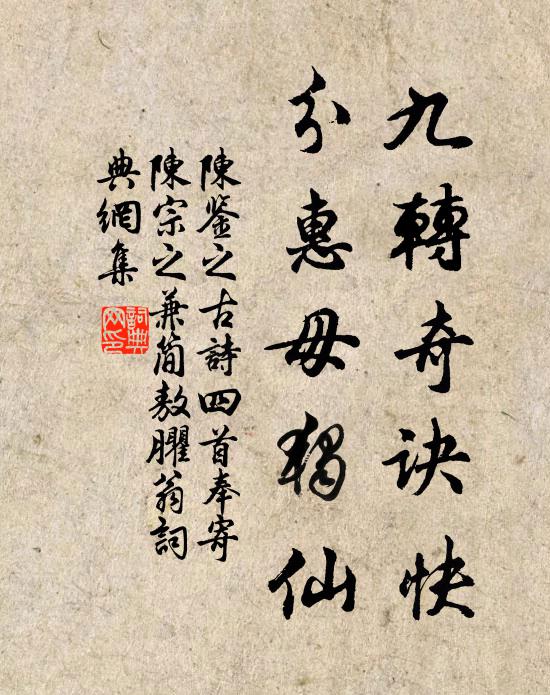 九轉奇訣快
分惠毋獨仙
陳鉴之古詩四首奉寄
陳宗之兼简敖臞翁詞
典網集
詞典
网印